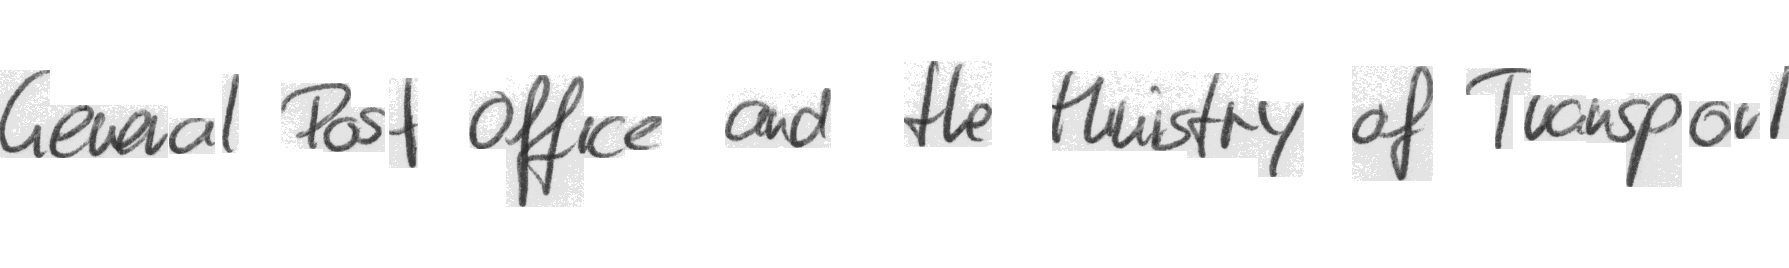 General Post Office and the Ministry of Transport